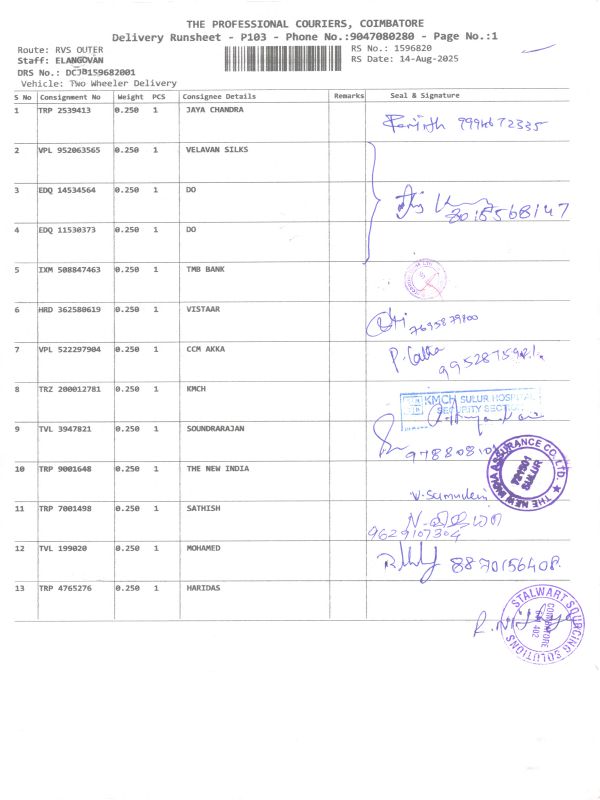 THE PROFESSIONAL COURIERS, COIMBATORE
Delivery Runsheet - P103 - Phone No.:9047080280 - Page No.:1
Route: RVS OUTER RS No.: 1596820
Staff: ELANGOVAN RS Date: 14-Aug-2025
DRS No.: DCJB159682001
Vehicle: Two Wheeler Delivery
S No Consignment No Weight PCS Consignee Details Remarks Seal & Signature
1 TRP 2539413 0.250 1 JAYA CHANDRA
2 VPL 952063565 0.250 1 VELAVAN SILKS
3 EDQ 14534564 0.250 1 DO
8015568147
4 EDQ 11530373 0.250 1 DO
5 IXM 508847463 0.250 1 TMB BANK
6 HRD 362580619 0.250 1 VISTAAR
7695879400
7 VPL 522297904 0.250 1 CCM AKKA
8 TRZ 200012781 0.250 1 KMCH
KMCH SULUR HOSPITAL
SECURITY SECTION
9 TVL 3947821 0.250 1 SOUNDRARAJAN
THE NEW INDIA ASSURANCE CO. LTD.
721901
SULUR
10 TRP 9001648 0.250 1 THE NEW INDIA
11 TRP 7001498 0.250 1 SATHISH
9629107304
12 TVL 199020 0.250 1 MOHAMED
8870156408
13 TRP 4765276 0.250 1 HARIDAS
STALWART SOURCING SOLUTIONS
COIMBATORE